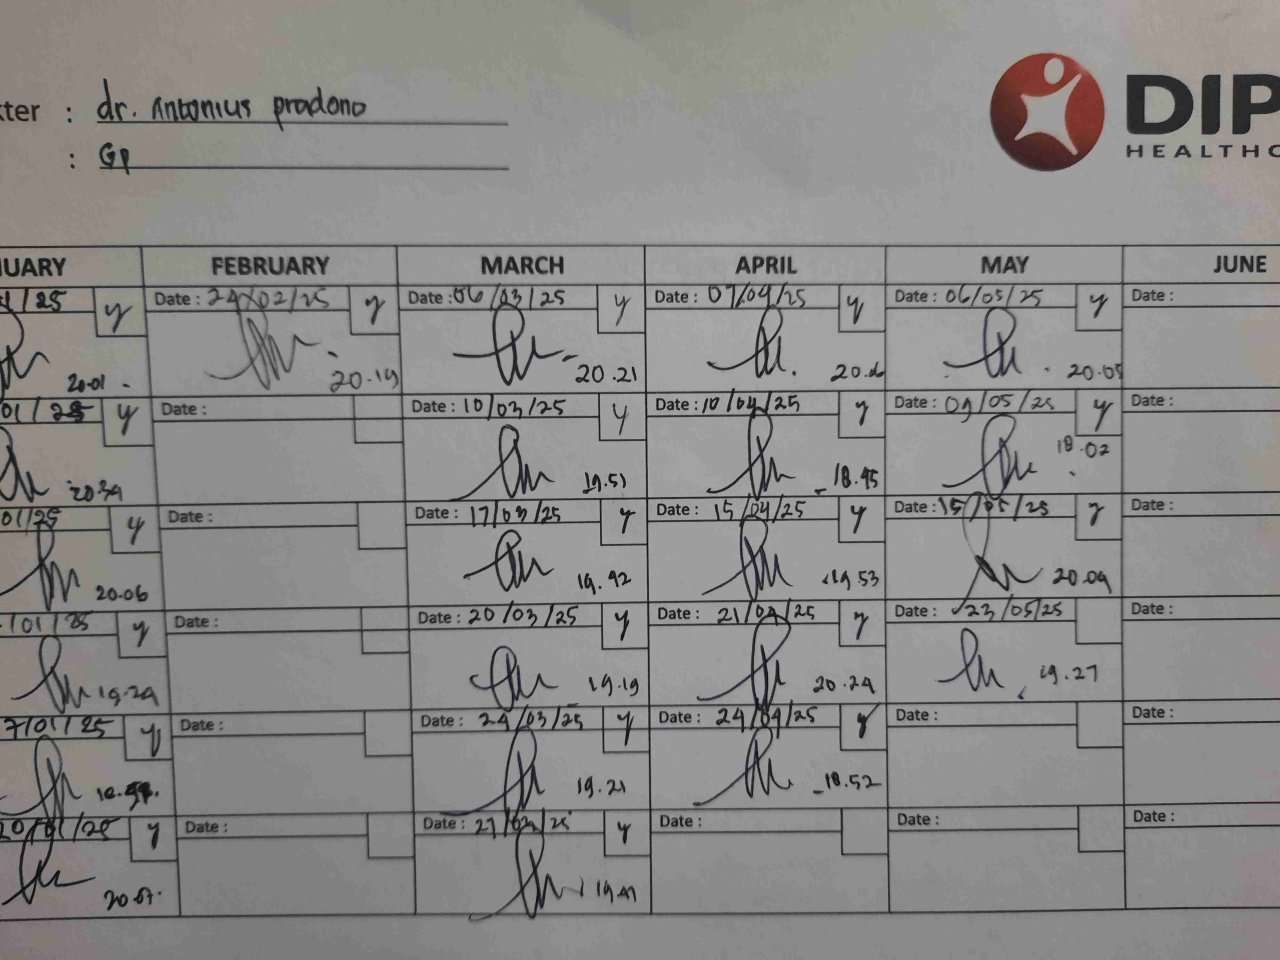 kter : dr. Antonius pradono
: GP
DIP
HEALTHC
UARY FEBRUARY MARCH APRIL MAY JUNE
/25 y Date : 24/02/25 y Date : 06/03/25 y Date : 07/04/25 y Date : 06/05/25 y Date :
20.01 20.19 20.21 20.05
01/25 y Date : Date : 10/03/25 y Date : 10/04/25 y Date : 09/05/25 y Date :
20.34 19.51 18.45 18.02
01/25 y Date : Date : 17/03/25 y Date : 15/04/25 y Date : 15/05/25 y Date :
20.06 19.42 19.53 20.09
/01/25 y Date : Date : 20/03/25 y Date : 21/04/25 y Date : 23/05/25 Date :
19.24 19.19 20.24 19.27
7/01/25 y Date : Date : 24/03/25 y Date : 24/04/25 y Date : Date :
19.21 18.52
20/01/25 y Date : Date : 27/03/25 y Date : Date : Date :